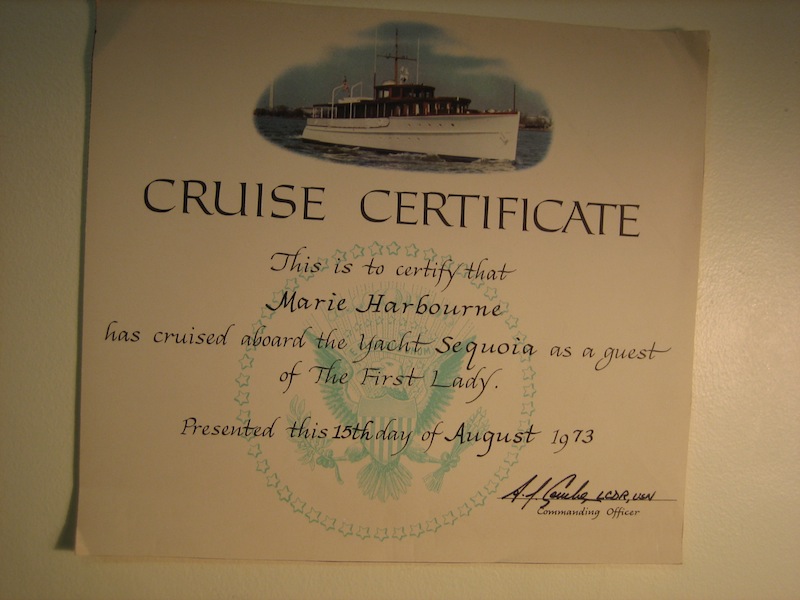 CRUISE CERTIFICATE
This is to certify that
Marie Harbourne
has cruised aboard the Yacht Sequoia as a guest
of The First Lady.
Presented this 15th day of August 1973
LCDR, USN
Commanding Officer